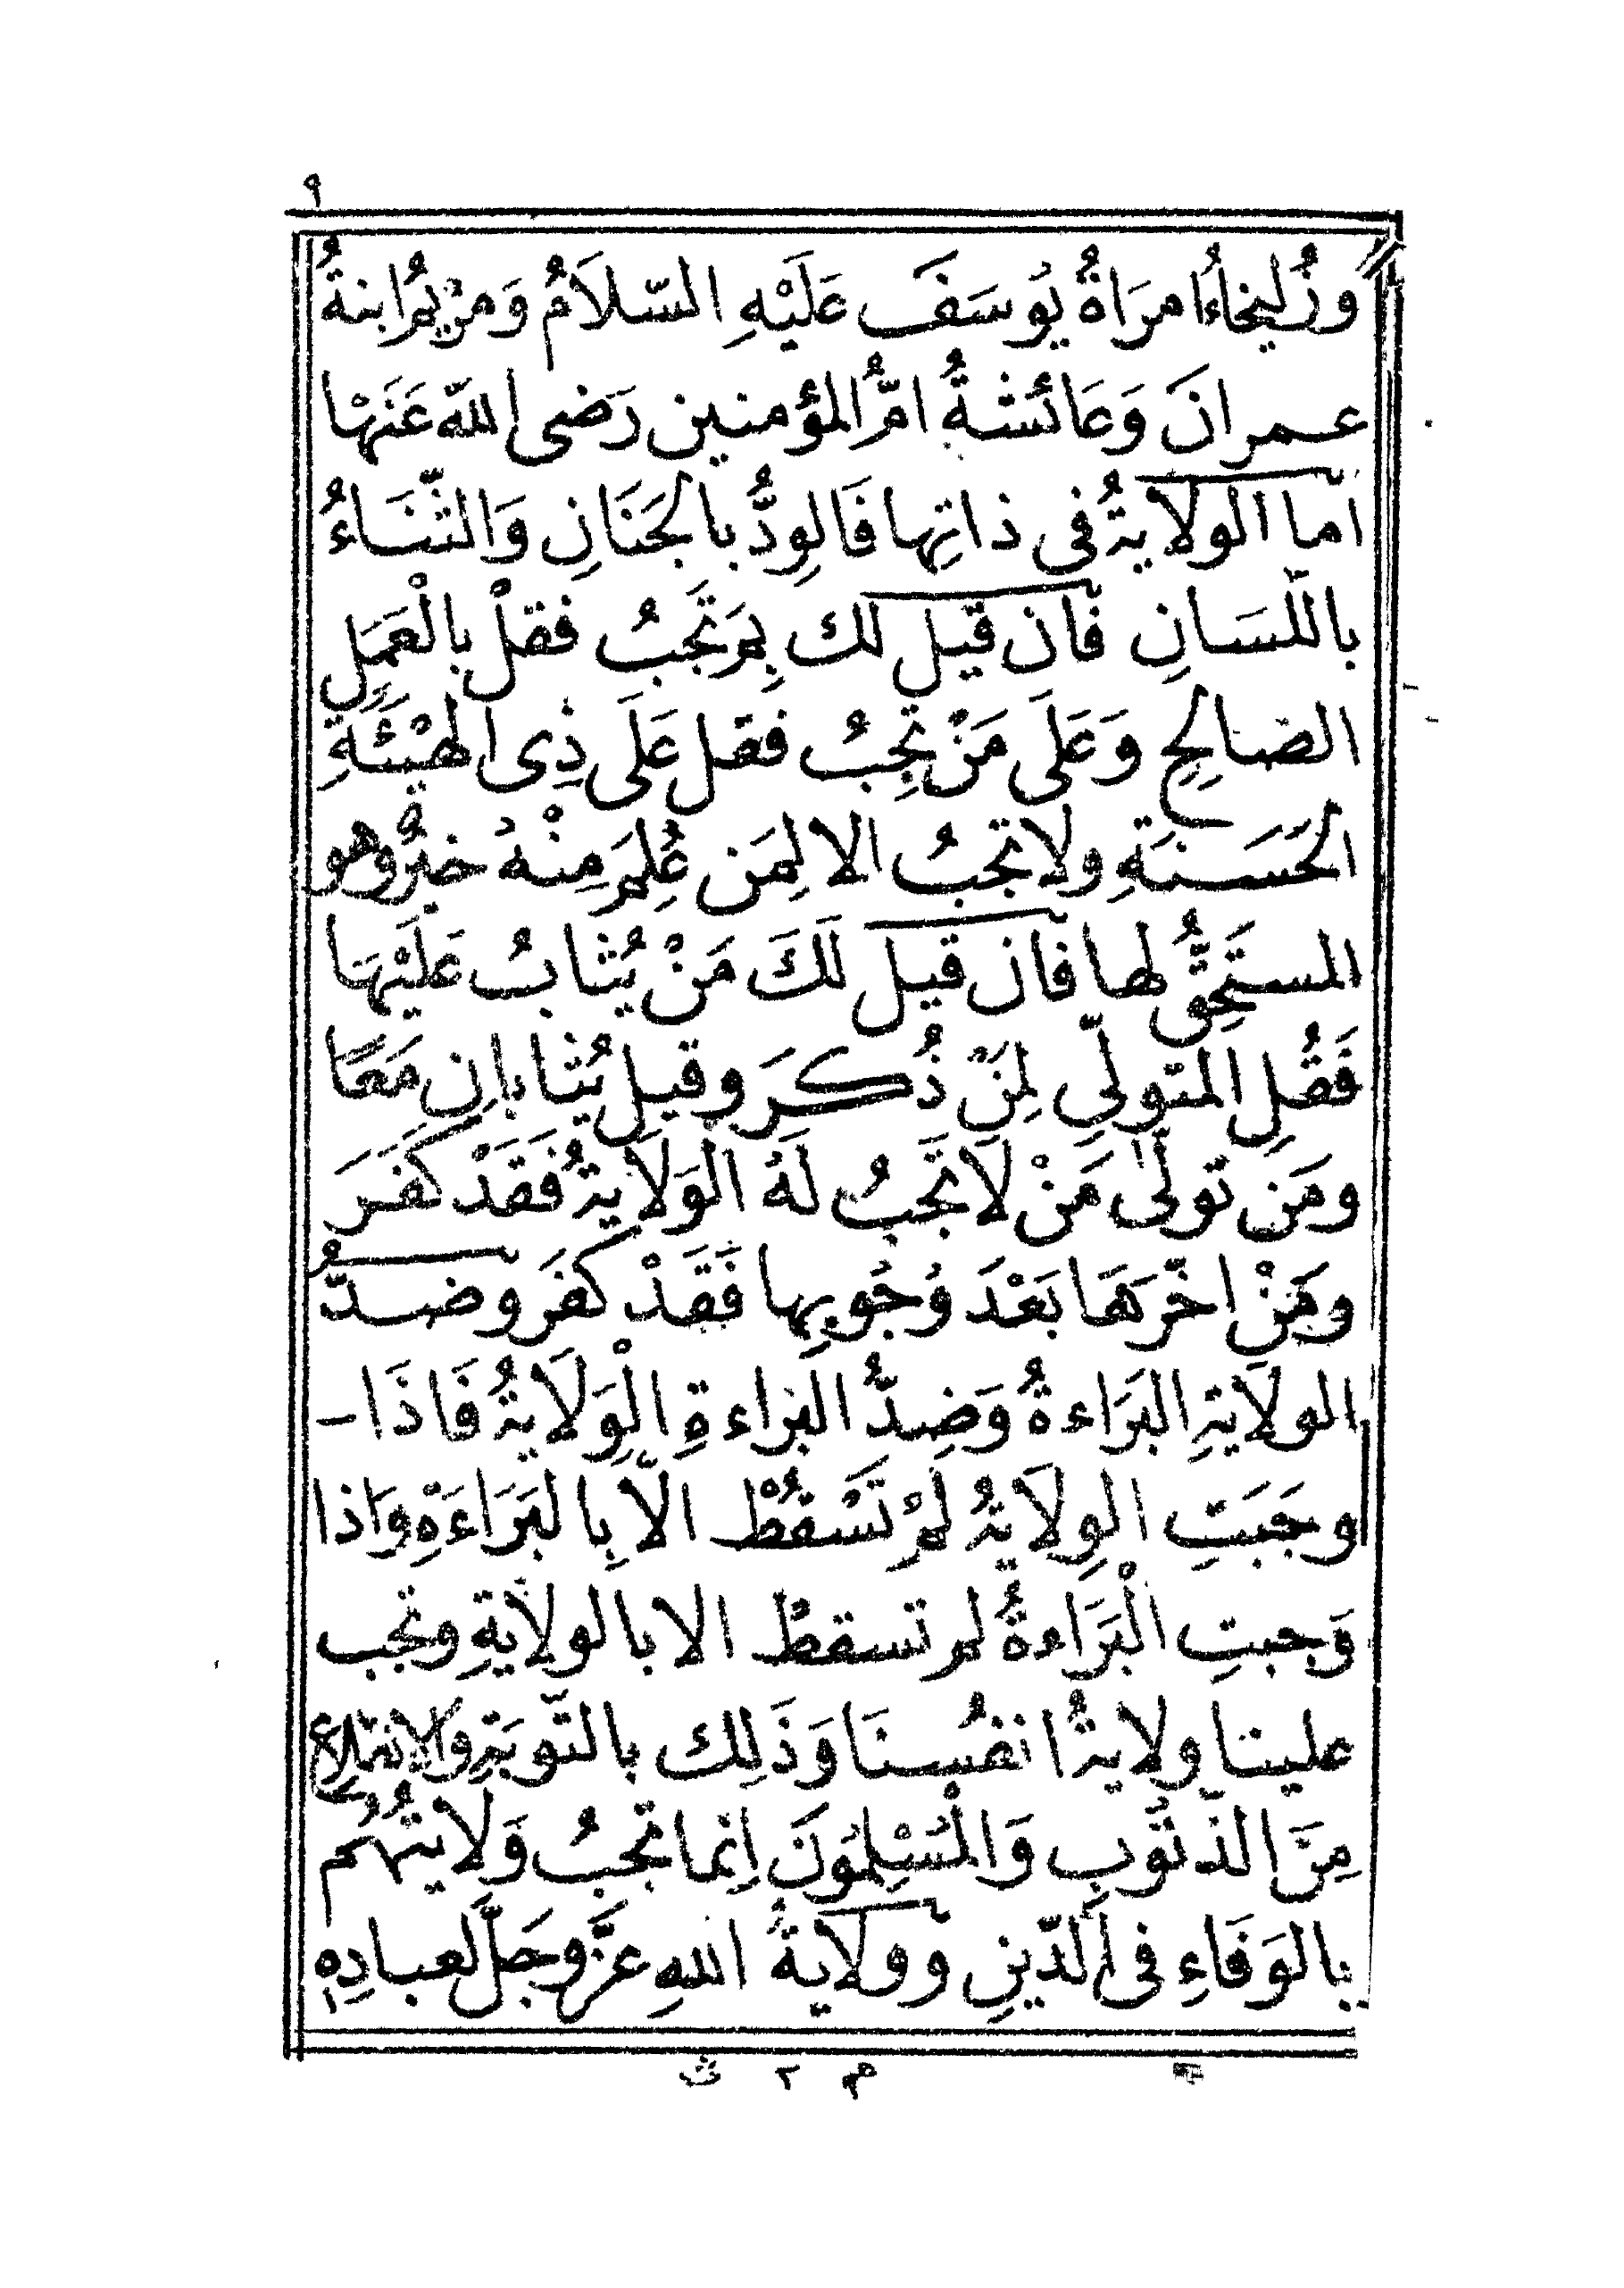 ٩
وزُليخاءُ امرَاةُ يوُسَفَ عَلَيْهِ السّلاَمُ وَمرْيمُ ابنةُ
عمرانَ وَعَائشةُ امُّ المؤمنين رَضى الله عَنْها
امّا الولايةُ فى ذاتِها فَالوِدُّ بالجَنَانِ وَالثّنَاءُ
باللّسَانِ فان قيل لك بِمَ تَجبُ فقلْ بالْعَمَلِ
الصالِحِ وَعَلَى مَنْ تجِبُ فقل عَلَى ذِى الهَيْئَةِ
الحَسَنةِ ولا تجبُ الا لِمَن عُلِمَ مِنْهُ خيرٌ وهو
المستَحِقُّ لها فان قيل لَكَ مَنْ يُثابُ عَليْها
فَقُلِ المتولِّى لِمَنْ ذُكرَ وقيل يُثابانِ مَعًا
ومَن تولّى مَنْ لاَ تَجبُ لَهُ الوَلاَيةُ فَقَدْ كفَرَ
ومَنْ اخّرَهَا بَعْدَ وُجُوبِها فَقَدْ كفَرَ وضدُّ
الولاَيةِ البَرَاءةُ وَضِدُّ البراءةِ الْوَلاَيةُ فَاذَا-
وجَبَتِ الوِلاَيةُ لَمْ تَسْقُطْ الاّ بِالبَرَاءَةِ وَاذا
وَجبتِ الْبَرَاءةُ لم تسقطْ الا بالولايةِ وتجب
علينا ولايةُ انفُسنَا وَذَلِك بالتّوبَةِ والاقلاع
مِنَ الذّنُوبِ وَالمُسْلِمُونَ اِنما تجبُ وَلايتُهُم
بالوَفَاءِ فى الدّينِ وولايةُ اللهِ عزَّ وجَلَّ لعبادِهِ
م ٢ ث